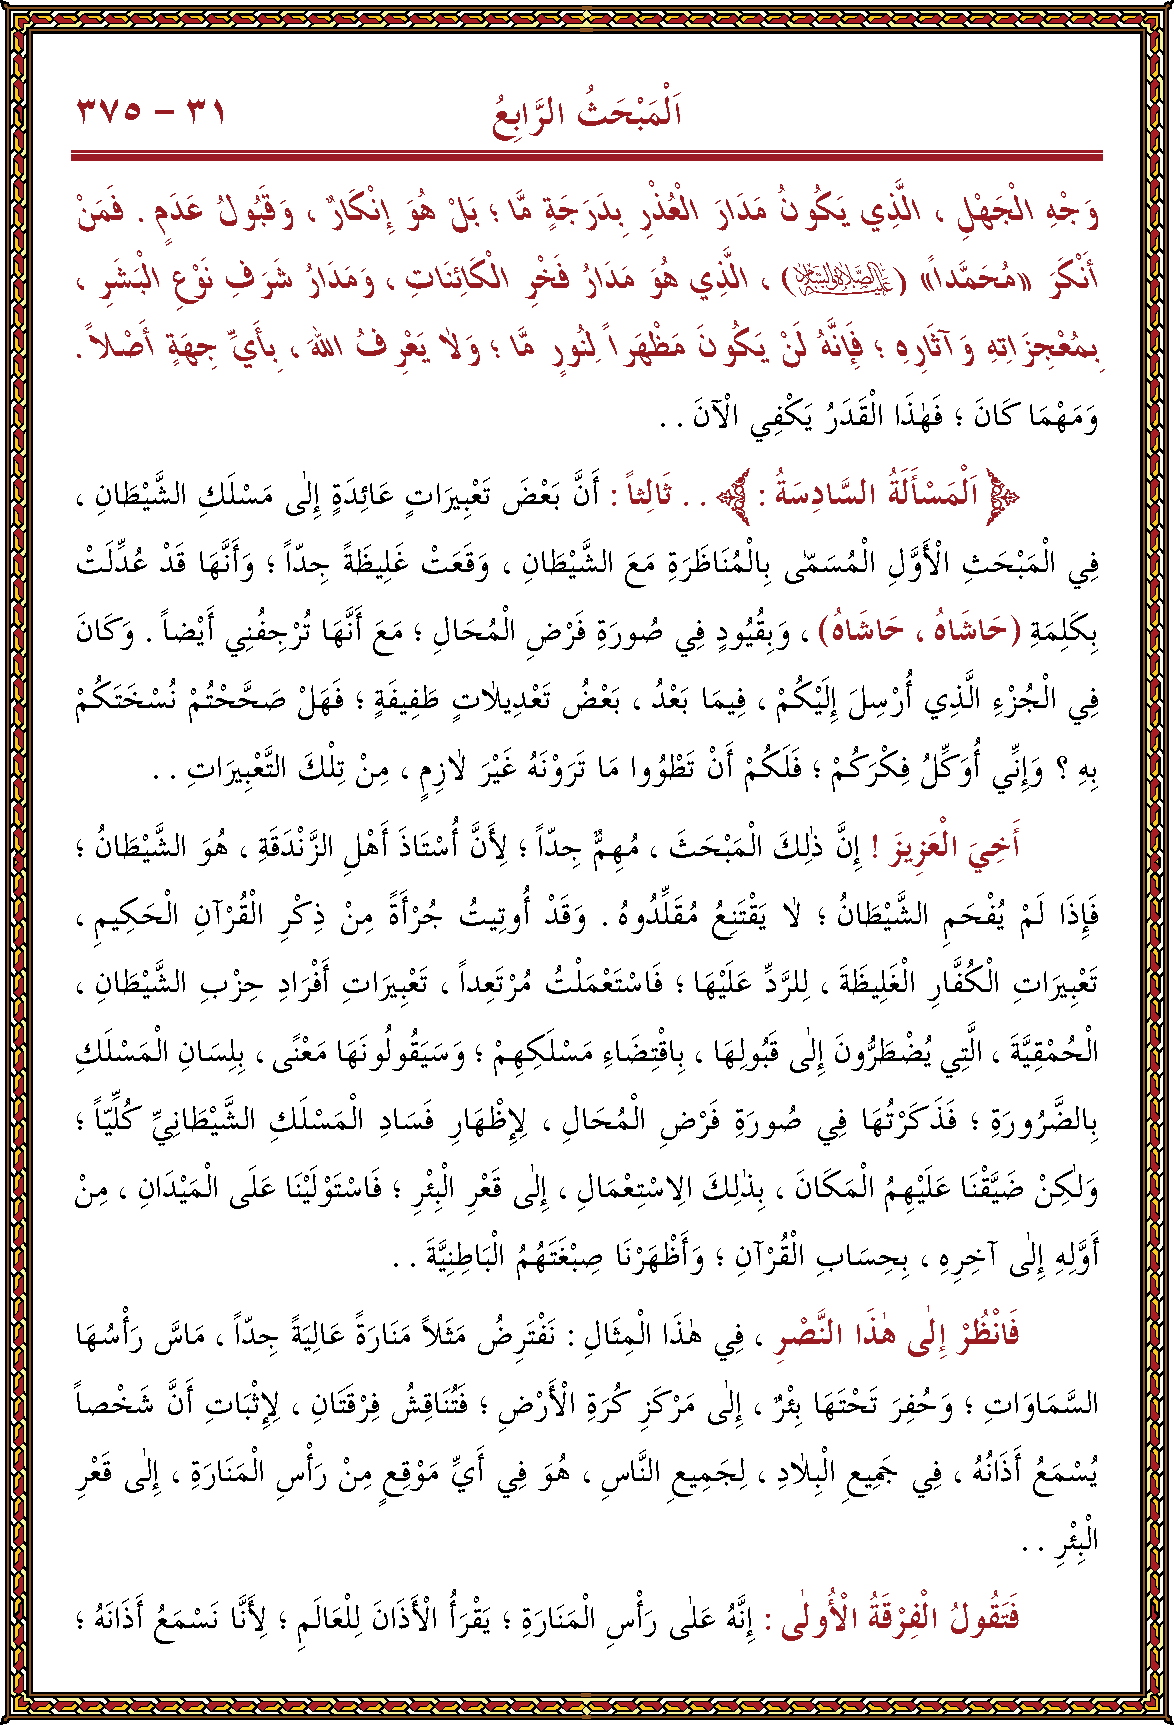 اَلْمَبْحَثُ الرَّابِعُ ٣١ – ٣٧٥
وَجْهِ الْجَهْلِ ، الَّذِي يَكُونُ مَدَارَ الْعُذْرِ بِدَرَجَةٍ مَّا ؛ بَلْ هُوَ إِنْكَارٌ ، وَقَبُولُ عَدَمٍ . فَمَنْ
أَنْكَرَ «مُحَمَّداً» (عليه الصلاة والسلام) ، الَّذِي هُوَ مَدَارُ فَخْرِ الْكَائِنَاتِ ، وَمَدَارُ شَرَفِ نَوْعِ الْبَشَرِ ،
بِمُعْجِزَاتِهِ وَآثَارِهِ ؛ فَإِنَّهُ لَنْ يَكُونَ مَظْهَراً لِنُورٍ مَّا ؛ وَلاٰ يَعْرِفُ اللهَ ، بِأَيِّ جِهَةٍ أَصْلاً .
وَمَهْمَا كَانَ ؛ فَهٰذَا الْقَدَرُ يَكْفِي الْآنَ . .
﴿ اَلْمَسْأَلَةُ السَّادِسَةُ : ﴾ . . ثَالِثاً : أَنَّ بَعْضَ تَعْبِيرَاتٍ عَائِدَةٍ إِلٰى مَسْلَكِ الشَّيْطَانِ ،
فِي الْمَبْحَثِ الْأَوَّلِ الْمُسَمّٰى بِالْمُنَاظَرَةِ مَعَ الشَّيْطَانِ ، وَقَعَتْ غَلِيظَةً جِدّاً ؛ وَأَنَّهَا قَدْ عُدِّلَتْ
بِكَلِمَةِ (حَاشَاهُ ، حَاشَاهُ) ، وَبِقُيُودٍ فِي صُورَةِ فَرْضِ الْمُحَالِ ؛ مَعَ أَنَّهَا تُرْجِفُنِي أَيْضاً . وَكَانَ
فِي الْجُزْءِ الَّذِي أُرْسِلَ إِلَيْكُمْ ، فِيمَا بَعْدُ ، بَعْضُ تَعْدِيلاٰتٍ طَفِيفَةٍ ؛ فَهَلْ صَحَّحْتُمْ نُسْخَتَكُمْ
بِهِ ؟ وَإِنِّي أُوَكِّلُ فِكْرَكُمْ ؛ فَلَكُمْ أَنْ تَطْوُوا مَا تَرَوْنَهُ غَيْرَ لاٰزِمٍ ، مِنْ تِلْكَ التَّعْبِيرَاتِ . .
أَخِيَ الْعَزِيزَ ! إِنَّ ذٰلِكَ الْمَبْحَثَ ، مُهِمٌّ جِدّاً ؛ لِأَنَّ أُسْتَاذَ أَهْلِ الزَّنْدَقَةِ ، هُوَ الشَّيْطَانُ ؛
فَإِذَا لَمْ يُفْحَمِ الشَّيْطَانُ ؛ لاٰ يَقْتَنِعُ مُقَلِّدُوهُ . وَقَدْ أُوتِيتُ جُرْأَةً مِنْ ذِكْرِ الْقُرْآنِ الْحَكِيمِ ،
تَعْبِيرَاتِ الْكُفَّارِ الْغَلِيظَةَ ، لِلرَّدِّ عَلَيْهَا ؛ فَاسْتَعْمَلْتُ مُرْتَعِداً ، تَعْبِيرَاتِ أَفْرَادِ حِزْبِ الشَّيْطَانِ ،
الْحُمْقِيَّةَ ، الَّتِي يُضْطَرُّونَ إِلٰى قَبُولِهَا ، بِاقْتِضَاءِ مَسْلَكِهِمْ ؛ وَسَيَقُولُونَهَا مَعْنًى ، بِلِسَانِ الْمَسْلَكِ
بِالضَّرُورَةِ ؛ فَذَكَرْتُهَا فِي صُورَةِ فَرْضِ الْمُحَالِ ، لِإِظْهَارِ فَسَادِ الْمَسْلَكِ الشَّيْطَانِيِّ كُلِّيّاً ؛
وَلٰكِنْ ضَيَّقْنَا عَلَيْهِمُ الْمَكَانَ ، بِذٰلِكَ الاِسْتِعْمَالِ ، إِلٰى قَعْرِ الْبِئْرِ ؛ فَاسْتَوْلَيْنَا عَلَى الْمَيْدَانِ ، مِنْ
أَوَّلِهِ إِلٰى آخِرِهِ ، بِحِسَابِ الْقُرْآنِ ؛ وَأَظْهَرْنَا صِبْغَتَهُمُ الْبَاطِنِيَّةَ . .
فَانْظُرْ إِلٰى هٰذَا النَّصْرِ ، فِي هٰذَا الْمِثَالِ : نَفْتَرِضُ مَثَلاً مَنَارَةً عَالِيَةً جِدّاً ، مَاسَّ رَأْسُهَا
السَّمَاوَاتِ ؛ وَحُفِرَ تَحْتَهَا بِئْرٌ ، إِلٰى مَرْكَزِ كُرَةِ الْأَرْضِ ؛ فَتُنَاقِشُ فِرْقَتَانِ ، لِإِثْبَاتِ أَنَّ شَخْصاً
يُسْمَعُ أَذَانُهُ ، فِي جَمِيعِ الْبِلاٰدِ ، لِجَمِيعِ النَّاسِ ، هُوَ فِي أَيِّ مَوْقِعٍ مِنْ رَأْسِ الْمَنَارَةِ ، إِلٰى قَعْرِ
الْبِئْرِ . .
فَتَقُولُ الْفِرْقَةُ الْأُولٰى : إِنَّهُ عَلٰى رَأْسِ الْمَنَارَةِ ؛ يَقْرَأُ الْأَذَانَ لِلْعَالَمِ ؛ لِأَنَّا نَسْمَعُ أَذَانَهُ ؛